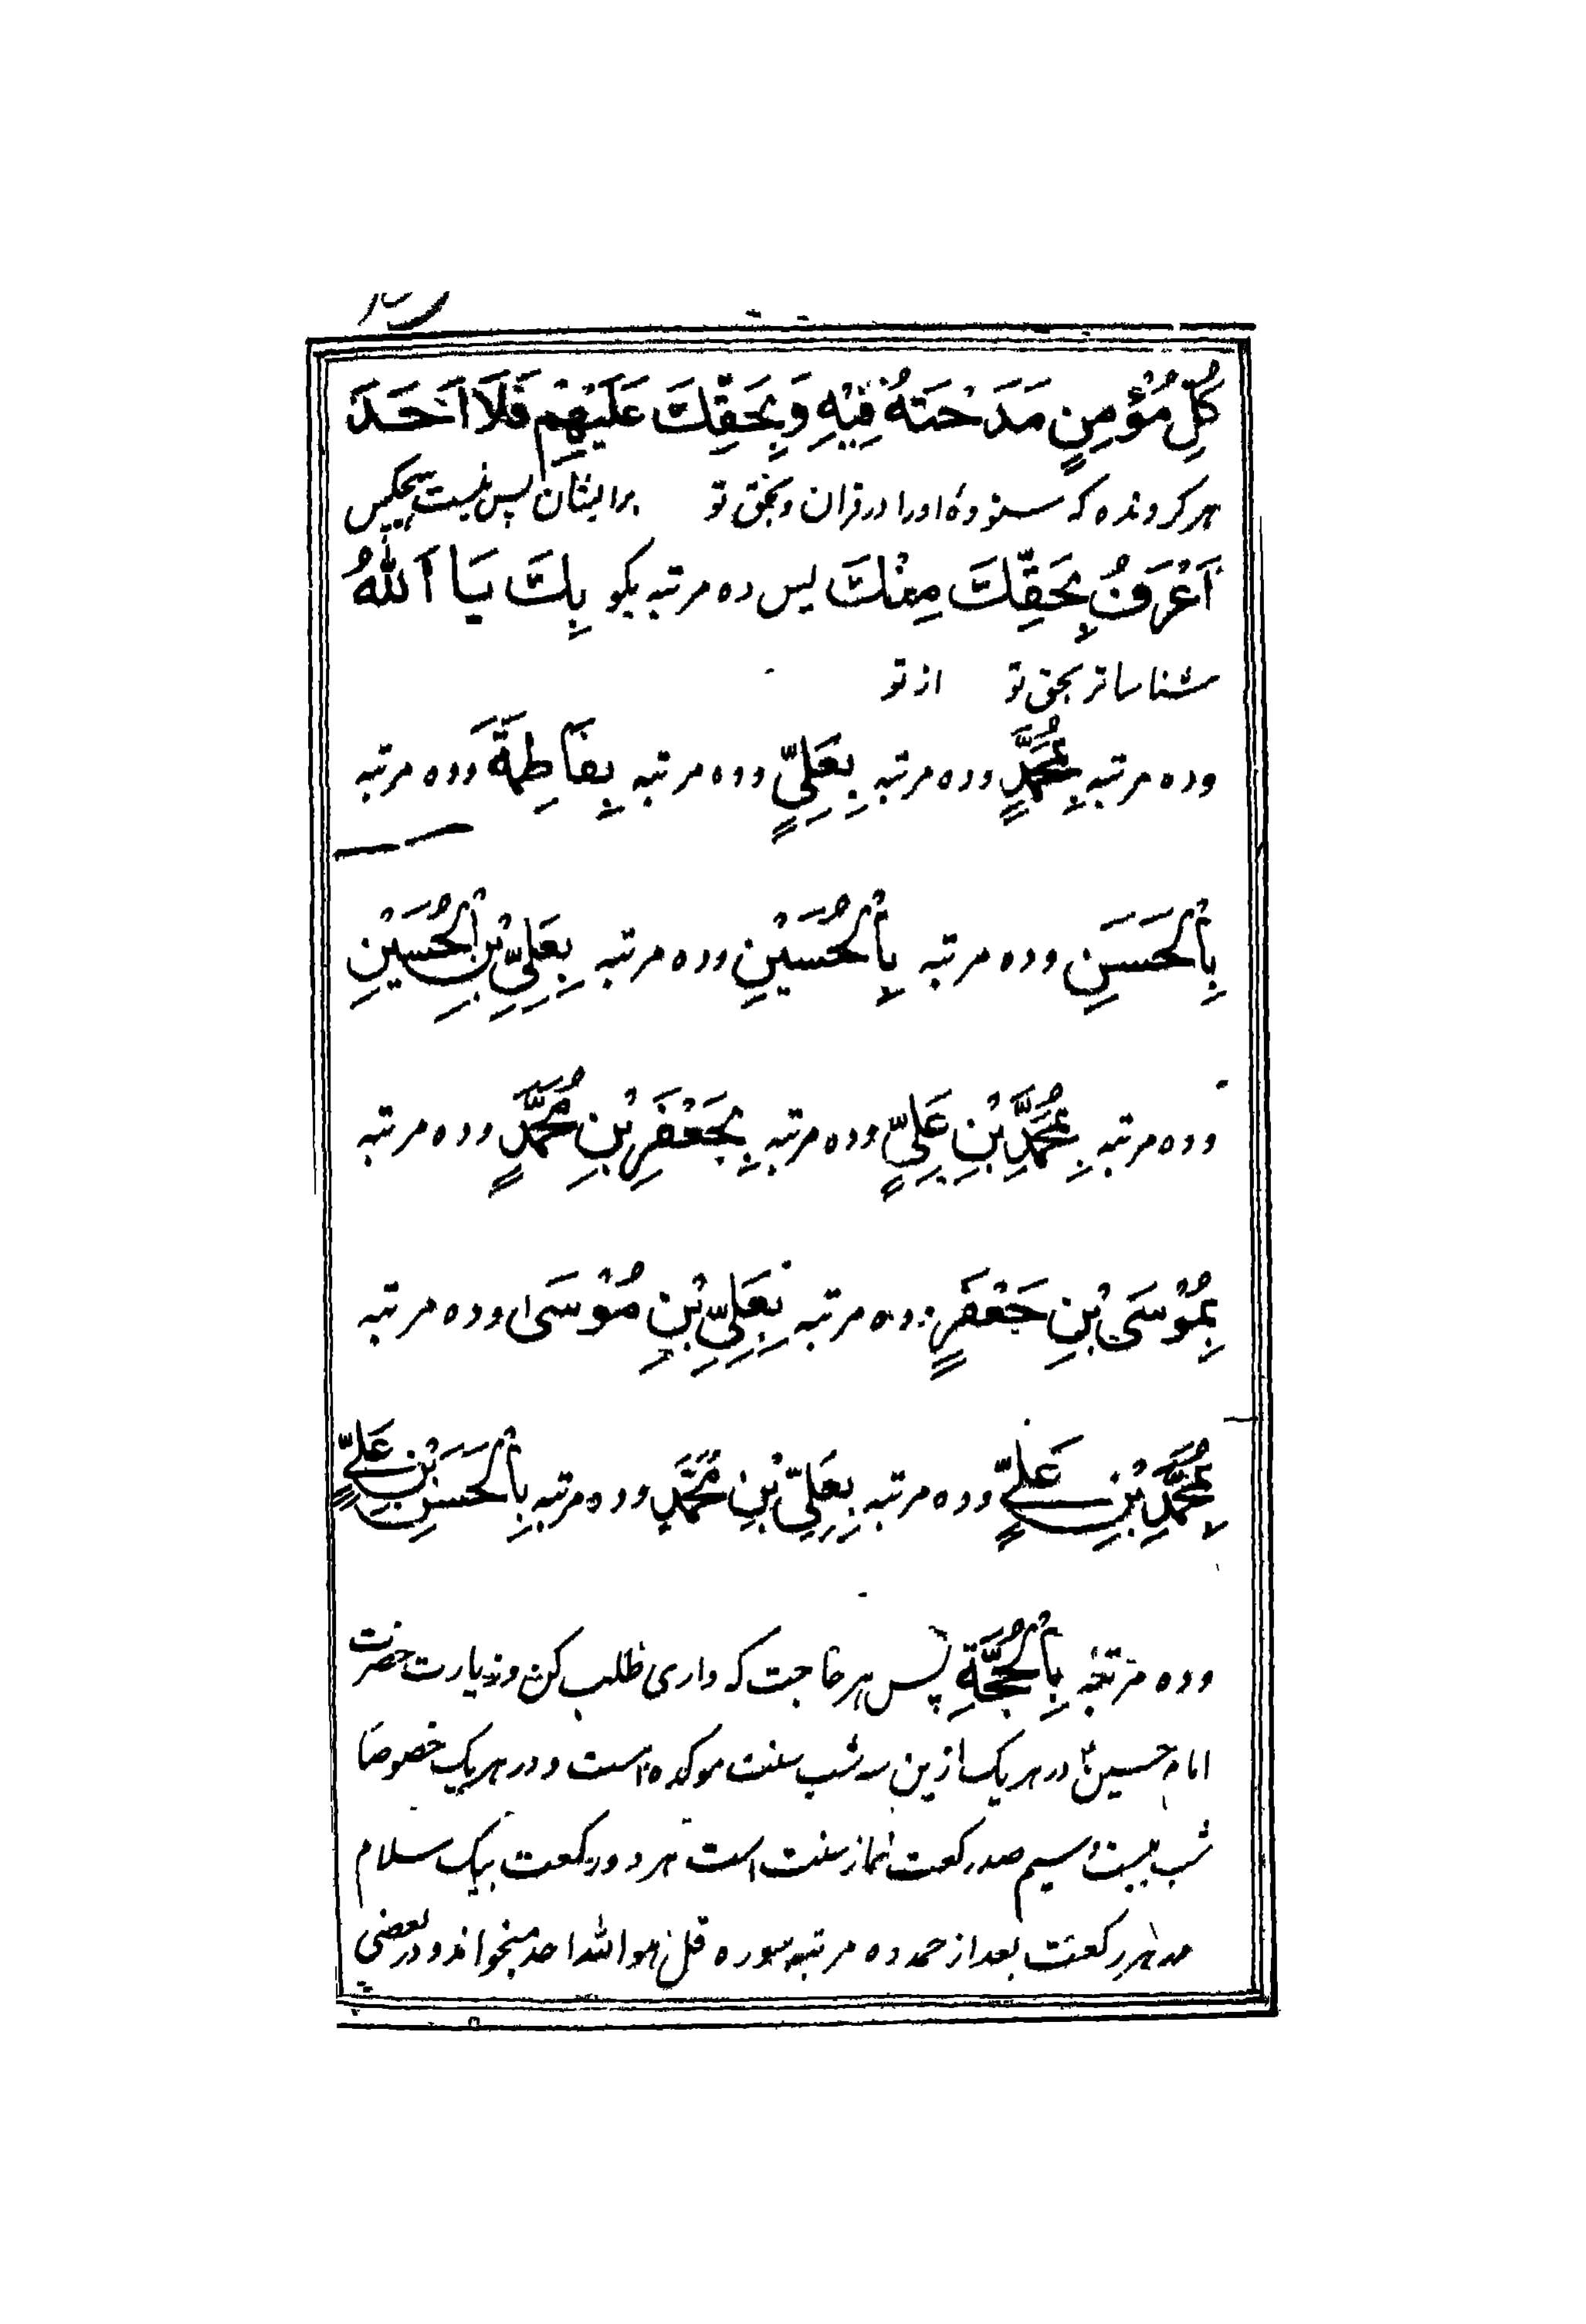 كُلِّ مُؤْمِنٍ مَدَحْتَهُ فِيْهِ وَبِحَقِّكَ عَلَيْهِمْ فَلَا اَحَدَ
هر گرونده که ستوده اورا در قران و بحق تو برایشان پس نیست هیچکس
اَعْرَفُ بِحَقِّكَ مِنْكَ پس ده مرتبه بگو بِكَ يَا اَللهُ
شناساتر بحق تو از تو
و ده مرتبه بِمُحَمَّدٍ و ده مرتبه بِعَلِيٍّ و ده مرتبه بِفَاطِمَةَ و ده مرتبه
بِالْحَسَنِ و ده مرتبه بِالْحُسَيْنِ و ده مرتبه بِعَلِيِّ بْنِ الْحُسَيْنِ
و ده مرتبه بِمُحَمَّدِ بْنِ عَلِيٍّ و ده مرتبه بِجَعْفَرِ بْنِ مُحَمَّدٍ و ده مرتبه
بِمُوْسَى بْنِ جَعْفَرٍ و ده مرتبه بِعَلِيِّ بْنِ مُوْسَى و ده مرتبه
بِمُحَمَّدِ بْنِ عَلِيٍّ و ده مرتبه بِعَلِيِّ بْنِ مُحَمَّدٍ و ده مرتبه بِالْحَسَنِ بْنِ عَلِيٍّ
و ده مرتبه بِالْحُجَّةِ پس هر حاجت که داری طلب کن و زیارت حضرت
امام حسینؑ در هر یک ازین سه شب سنت موکده است و در هر یک خصوصا
شب بیست و سیم صد رکعت نماز سنت است هر دو رکعت بیک سلام
در هر رکعت بعد از حمد ده مرتبه سوره قل هو الله احد میخواند و در بعضی